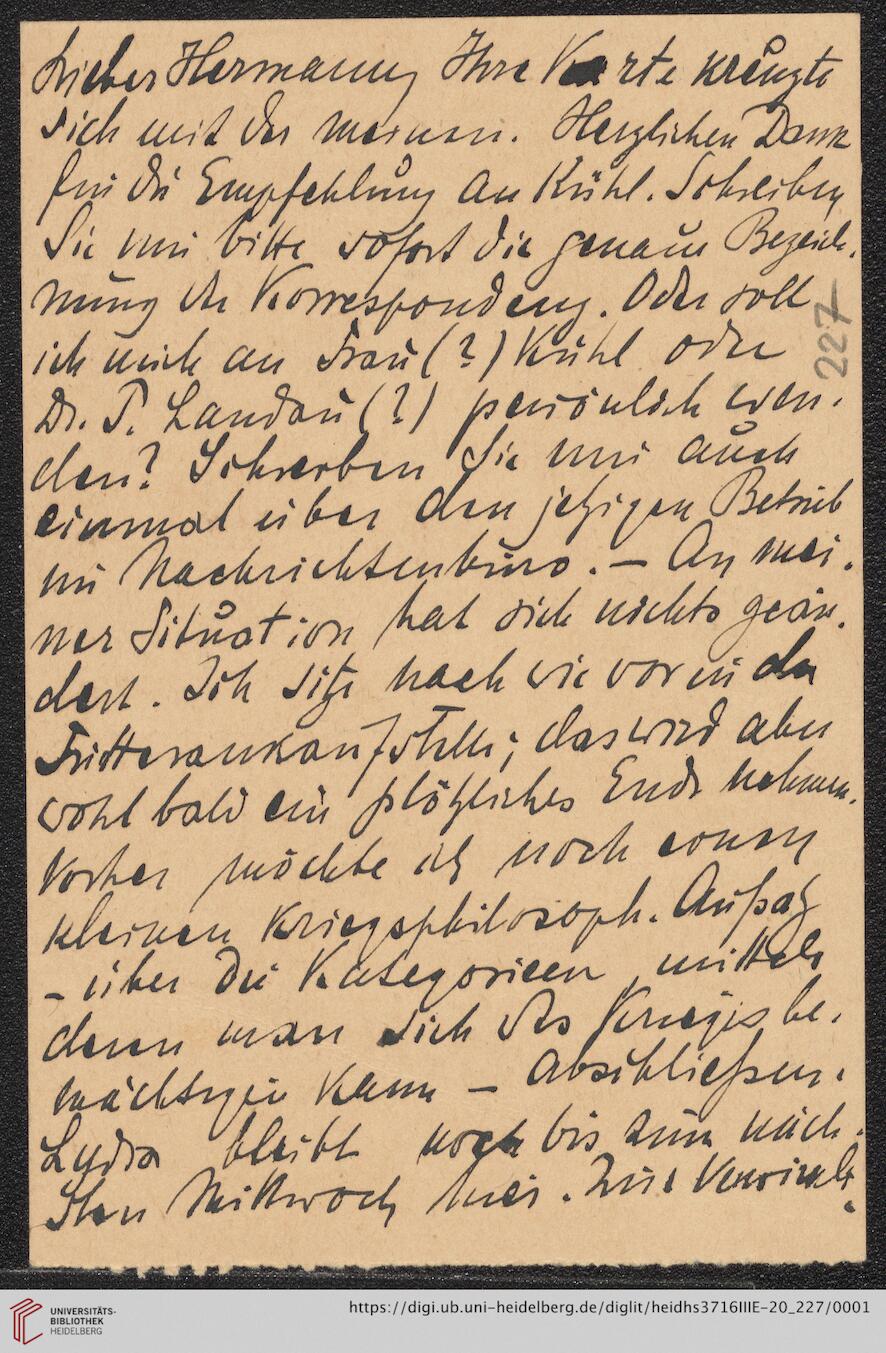 Lieber Hermann, Ihre Karte kreuzte
sich mit der meinen. Herzlichen Dank
für die Empfehlung an Kühl. Schreiben
Sie mir bitte sofort die genaue Bezeich-
nung der Korrespondenz. Oder soll
ich mich an Frau (?) Kühl oder
Dr. P. Landau (?) persönlich wen-
den? Schreiben Sie mir auch
einmal über den jetzigen Betrieb
im Nachrichtenbüro. – An mei-
ner Situation hat sich nichts geän-
dert. Ich sitze nach wie vor in der
Futterankaufstelle; das wird aber
wohl bald ein plötzliches Ende nehmen.
Vorher möchte ich noch einen
kleinen kriegsphilosoph. Aufsatz
– über die Kategorieen, mittels
deren man sich des Krieges be-
mächtigen kann – abschließen.
Lydia bleibt noch bis zum näch-
sten Mittwoch hier. Zur
227
UNIVERSITÄTS-
BIBLIOTHEK
HEIDELBERG
https://digi.ub.uni-heidelberg.de/diglit/heidhs3716IIIE-20_227/0001